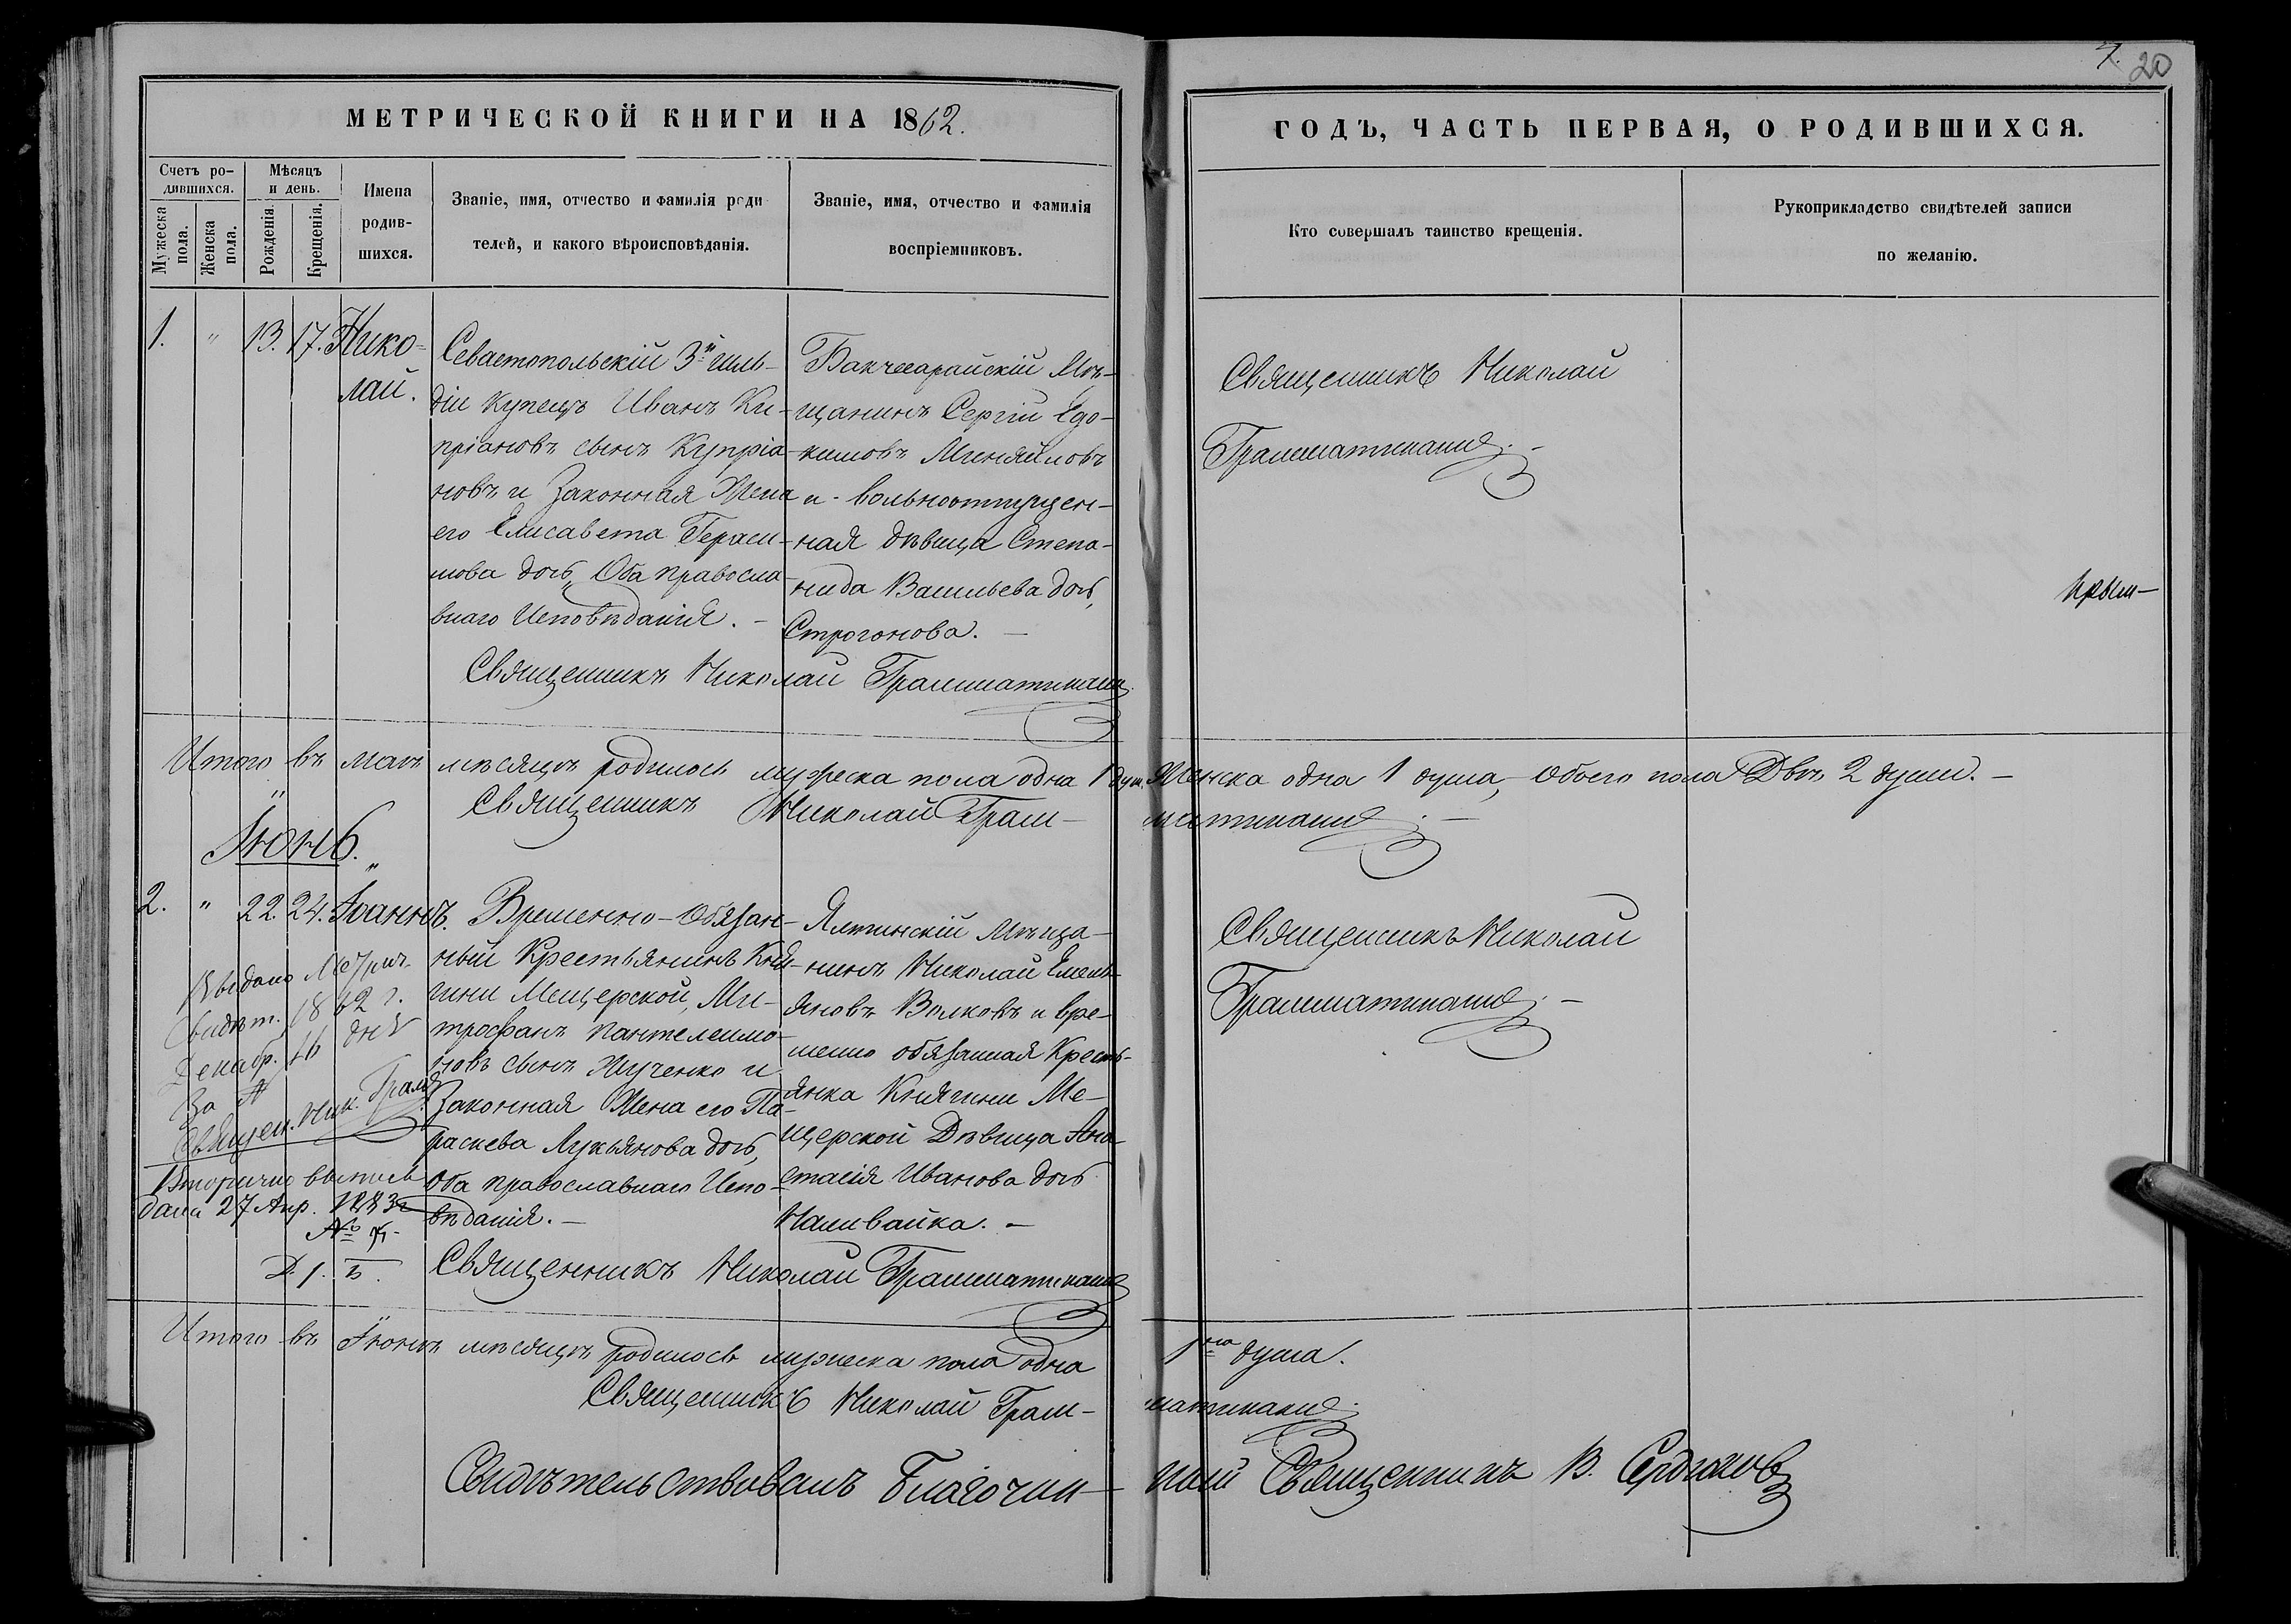 7. 20
МЕТРИЧЕСКОЙ КНИГИ НА 1862.
ГОДЪ, ЧАСТЬ ПЕРВАЯ, О РОДИВШИХСЯ.
Счетъ ро-
дившихся.
Мужеска пола.
Женска пола.
Мѣсяцъ
и день.
Рожденія.
Крещенія.
Имена
родив-
шихся.
Званіе, имя, отчество и фамилія роди
телей, и какого вѣроисповѣданія.
Званіе, имя, отчество и фамилія
воспріемниковъ.
Кто совершалъ таинство крещенія.
Рукоприкладство свидѣтелей записи
по желанію.
1. " 13. 17. Нико-
лай.
Севастопольскій 3й гиль-
діи купецъ Иванъ Ки-
пріановъ сынъ Купріа-
новъ и Законная Жена
его Елисавета Гераси-
мова дочь, Оба правосла-
внаго Исповѣданія. -
Бакчесарайскій Мѣ-
щанинъ Сергій Едо-
кимовъ Миняйловъ
и - вольноотпущен-
ная дѣвица Степа-
нида Васильева дочь,
Строгонова. -
Священникъ Николай
Грамматикакій. -
Священникъ Николай Грамматикакій
Итого въ маѣ мѣсяцѣ родилось мужеска пола одна 1 душ. Женска одна 1 душа, Обоего пола Двѣ 2 души. -
Священникъ Николай Грам-матикакій. -
Іюнь.
2. " 22. 24. Іоаннъ.
Временно-Обязан-
ный Крестьянинъ Кня-
гини Мещерской, Ми-
трофанъ Пантелеимо-
новъ сынъ Жученко и
Законная Жена его Па-
раскева Лукьянова дочь,
Оба православнаго Испо-
вѣданія. -
Ялтинскій Мѣща-
нинъ Николай Емель-
яновъ Волковъ и вре-
менно обязанная Кресть-
янка Княгини Ме-
щерской Дѣвица Ана-
стасія Иванова дочь
Наливайка. -
Священникъ Николай
Грамматикакій. -
Выдано Метрич.
Свидѣт. 1862 г.
Декабр. 16 дня
За №
Священ. Ник. Грам
Вторично выпись
дана 27 Апр.
Священникъ Николай Грамматикакій
Итого въ Іюнѣ мѣсяцѣ родилось мужеска пола одна 1на душа.
Священникъ Николай Грам-матикакій.
Свидѣтельствовалъ Благочин-ный Священникъ В.